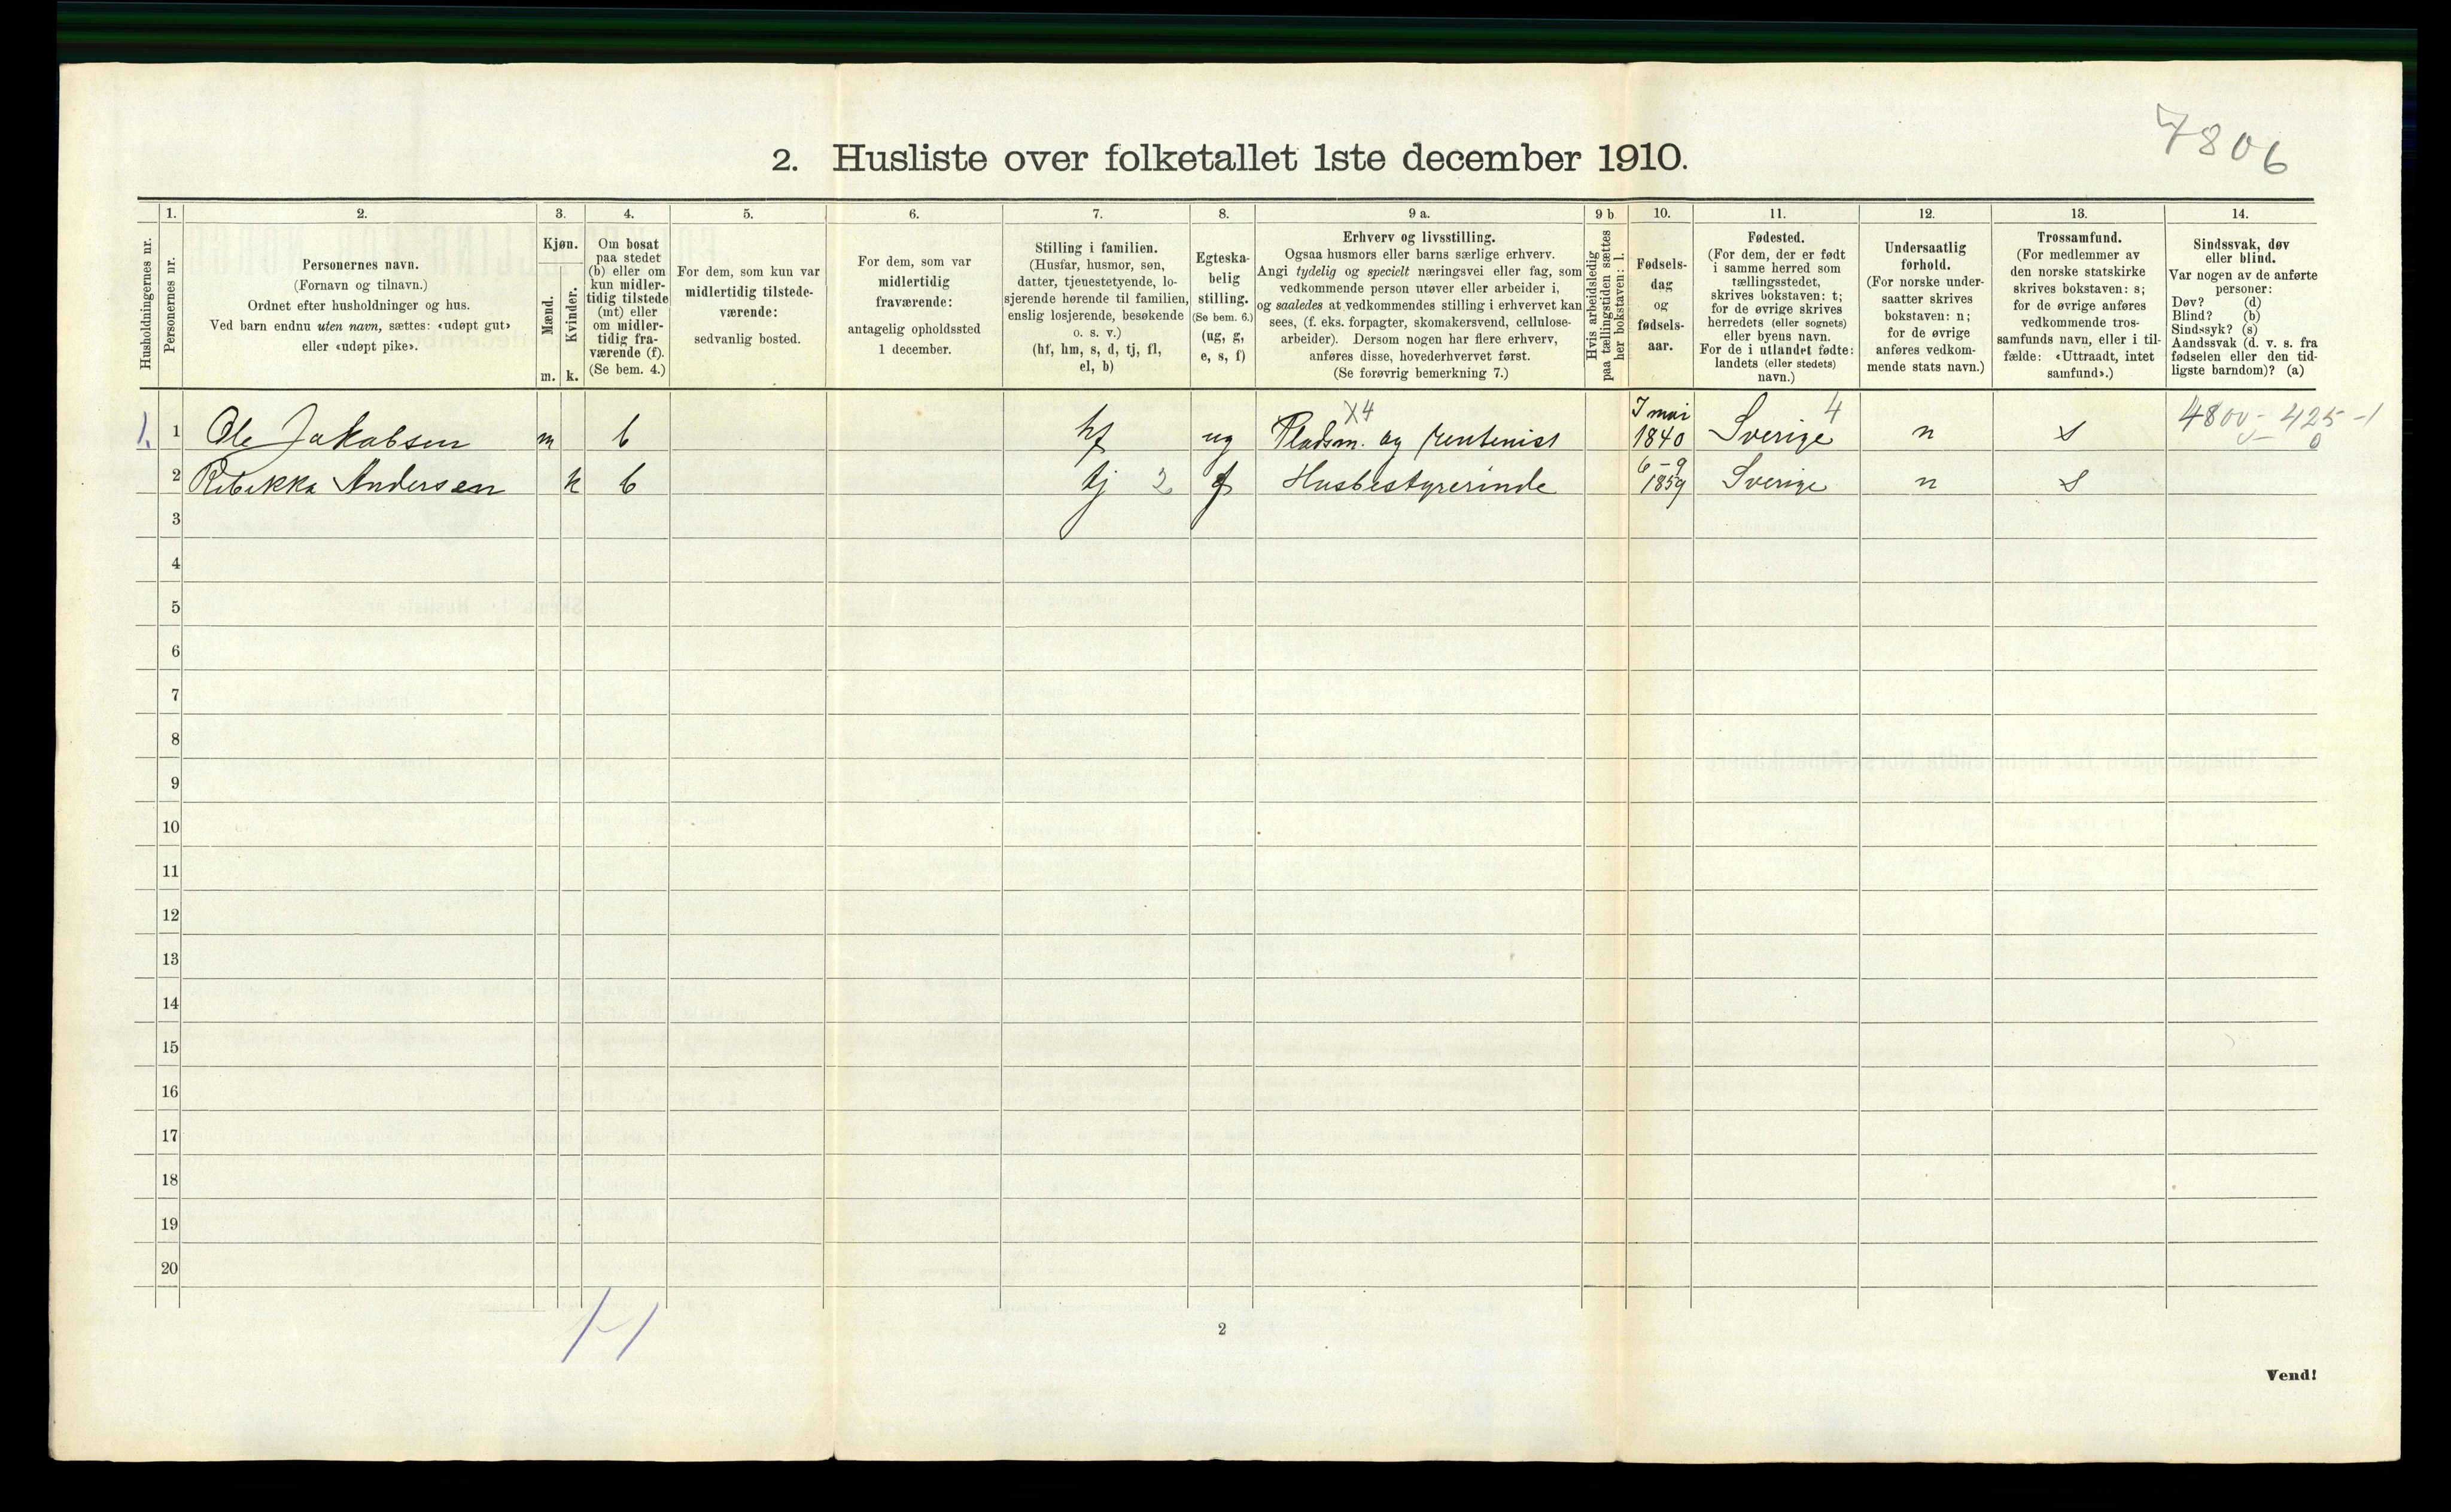 7806
2. Husliste over folketallet 1ste december 1910.
Husholdningernes nr.
1.
Personernes nr.
2.
Personernes navn.
(Fornavn og tilnavn.)
Ordnet efter husholdninger og hus.
Ved barn endnu uten navn, sættes: «udøpt gut»
eller «udøpt pike».
3.
Kjøn.
Mænd.
Kvinder.
m. k.
4.
Om bosat
paa stedet
(b) eller om
kun midler-
tidig tilstede
(mt) eller
om midler-
tidig fra-
værende (f).
(Se bem. 4.)
5.
For dem, som kun var
midlertidig tilstede-
værende:
sedvanlig bosted.
6.
For dem, som var
midlertidig
fraværende:
antagelig opholdssted
1 december.
7.
Stilling i familien.
(Husfar, husmor, søn,
datter, tjenestetyende, lo-
sjerende hørende til familien,
enslig losjerende, besøkende
o. s. v.)
(hf, hm, s, d, tj, fl,
el, b)
8.
Egteska-
belig
stilling.
(Se bem. 6.)
(ug, g,
e, s, f)
9 a.
Erhverv og livsstilling.
Ogsaa husmors eller barns særlige erhverv.
Angi tydelig og specielt næringsvei eller fag, som
vedkommende person utøver eller arbeider i,
og saaledes at vedkommendes stilling i erhvervet kan
sees, (f. eks. forpagter, skomakersvend, cellulose-
arbeider). Dersom nogen har flere erhverv,
anføres disse, hovederhvervet først.
(Se forøvrig bemerkning 7.)
9 b
Hvis arbeidsledig
paa tællingstiden sættes
her bokstaven: l.
10.
Fødsels-
dag
og
fødsels-
aar.
11.
Fødested.
(For dem, der er født
i samme herred som
tællingsstedet,
skrives bokstaven: t;
for de øvrige skrives
herredets (eller sognets)
eller byens navn.
For de i utlandet fødte:
landets (eller stedets)
navn.)
12.
Undersaatlig
forhold.
(For norske under-
saatter skrives
bokstaven: n;
for de øvrige
anføres vedkom-
mende stats navn.)
13.
Trossamfund.
(For medlemmer av
den norske statskirke
skrives bokstaven: s;
for de øvrige anføres
vedkommende tros-
samfunds navn, eller i til-
fælde: «Uttraadt, intet
samfund».)
14.
Sindssvak, døv
eller blind.
Var nogen av de anførte
personer:
Døv? (d)
Blind? (b)
Sindssyk? (s)
Aandssvak (d. v. s. fra
fødselen eller den tid-
ligste barndom)? (a)
X4 7 mai 4 4800 - 425 - 1
1. 1 Ole Jakobsen m b hf ug Pladsm. og rentenist 1840 Sverige n s 0
6-9
2 Rebekka Andersen k b tj 2 f Husbestyrerinde 1859 Sverige n s
3
4
5
6
7
8
9
10
11
12
13
14
15
16
17
18
19
20
2
Vend!